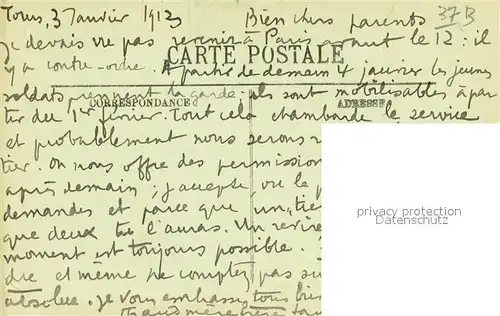 Tours, 3 Janvier 1912 Bien chers parents 37B
je devais ne pas revenir à Paris avant le 12 : il
CARTE POSTALE
y a contre-ordre. A partir de demain 4 janvier les jeunes
soldats prennent la garde. ils sont mobilisables à par
CORRESPONDANCE
ADRESSE
tir du 1er février. Tout cela chambarde le service
et probablement nous serons
tier. On nous offre des permission
après demain ; j'accepte, vu le
demandes et parce que un "tie
que deux tu l'auras. Un revire
moment est toujours possible.
dre et même ne comptez pas su
absolue. je vous embrasse tous bi
grand mère
privacy protection
Datenschutz